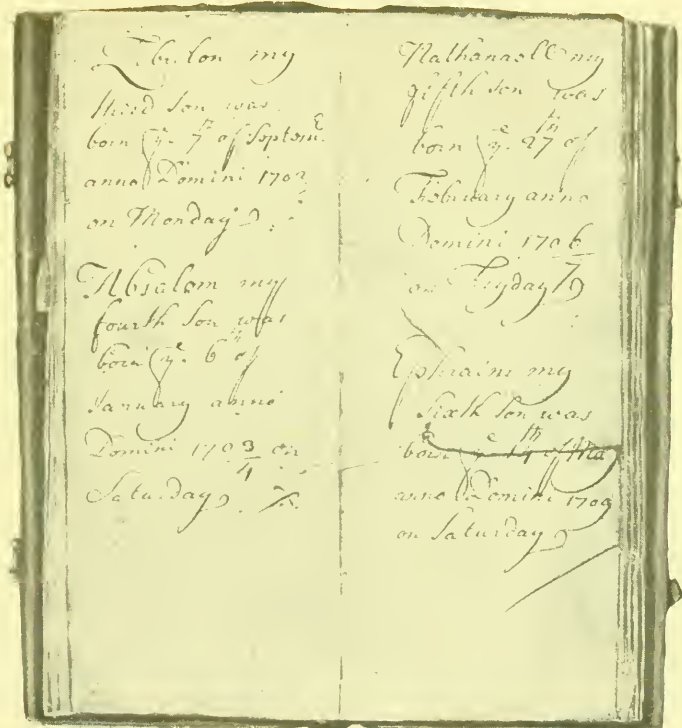 Zebulon my
third son was
born ye. 7th of Septemr
anno Domini 1702
on Monday
Absalom my
fourth son was
born ye. 6th of
January anno
Domini 1703/4 on
Saturday
Nathanaell my
fifth son was
born ye. 27th of
February anno
Domini 1706/7
on Fryday
Ephraim my
sixth son was
born ye 14th of Ma
anno Domini 1709
on Saturday